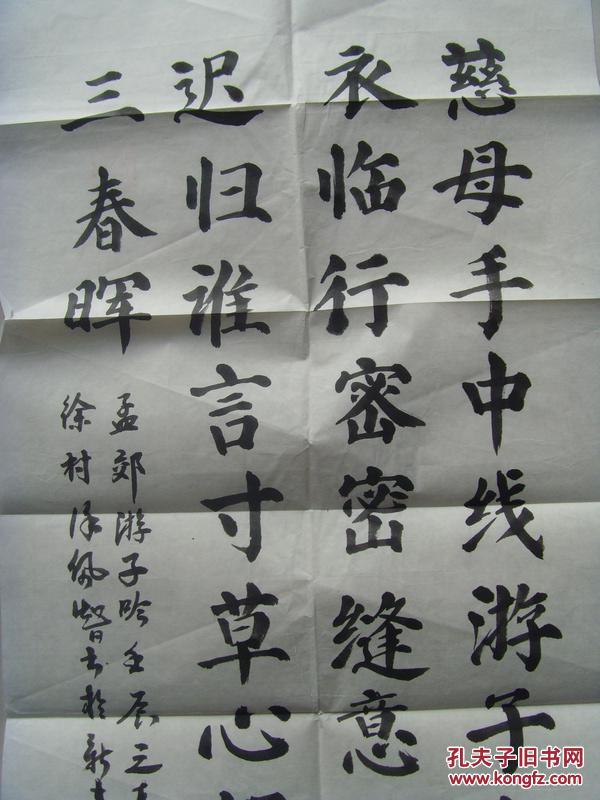 慈母手中线游子
衣临行密密缝意
迟归谁言寸草心
三春晖
孟郊游子吟壬辰之
徐村徐佩智书于新
孔夫子旧书网
www.kongfz.com